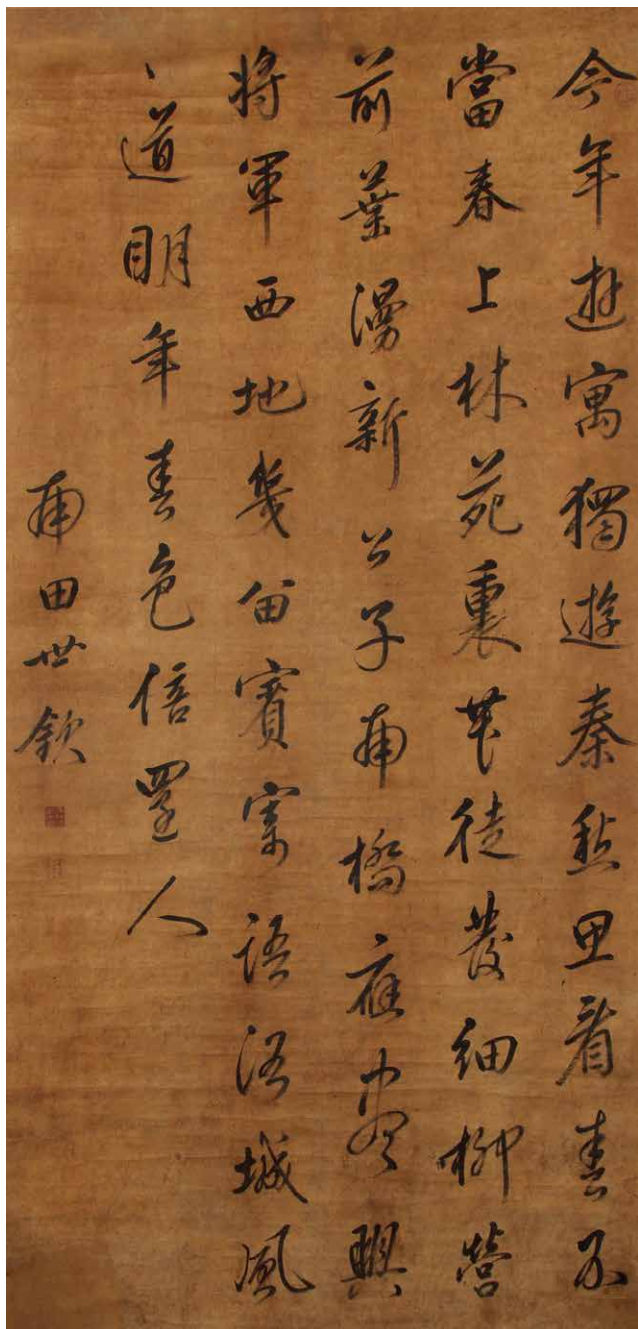 今年遊寓獨遊秦愁思看春不
當春上林苑裏花徒發細柳營
前葉漫新公子南橋應盡興
將軍西地幾留賓寄語洛城風
道明年春色倍還人
南田世欽